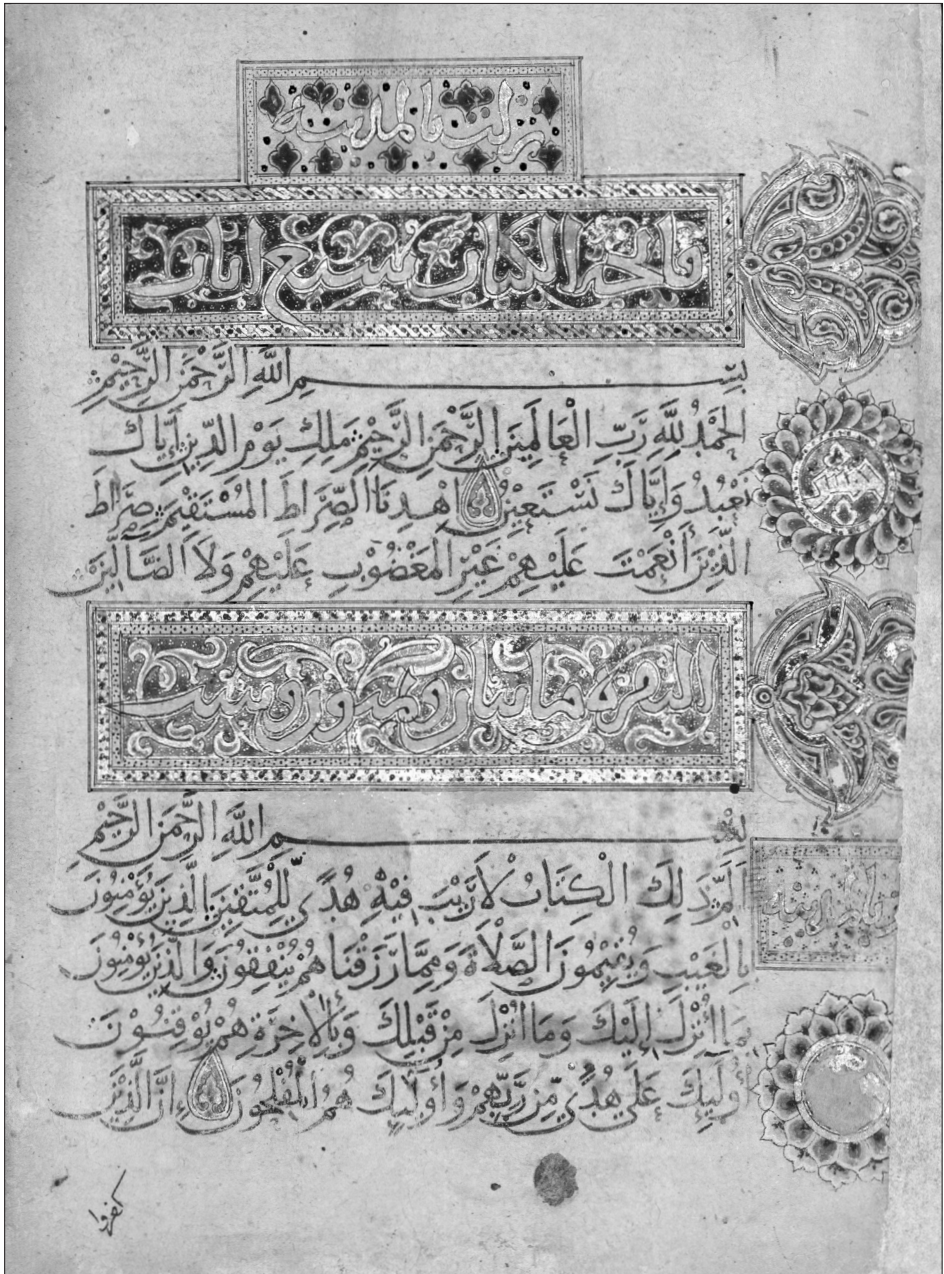 نزلت بالمدينه
فاتحة الكتاب سبع ايات
بِسْمِ اللَّهِ الرَّحْمَنِ الرَّحِيْمِ
الْحَمْدُ لِلَّهِ رَبِّ الْعَالَمِيْنَ الرَّحْمَنِ الرَّحِيْمِ مَلِكِ يَوْمِ الدِّيْنِ اِيَّاكَ
نَعْبُدُ وَاِيَّاكَ نَسْتَعِيْنُ اِهْدِنَا الصِّرَاطَ الْمُسْتَقِيْمَ صِرَاطَ
الَّذِيْنَ أَنْعَمْتَ عَلَيْهِمْ غَيْرِ الْمَغْضُوْبِ عَلَيْهِمْ وَلَا الضَّالِّيْنَ
البقره مائتان وثمنون وست
بِسْمِ اللَّهِ الرَّحْمَنِ الرَّحِيْمِ
الم ذَلِكَ الْكِتَابُ لَا رَيْبَ فِيْهِ هُدًى لِلْمُتَّقِيْنَ الَّذِيْنَ يُؤْمِنُوْنَ
بِالْغَيْبِ وَيُقِيْمُوْنَ الصَّلَاةَ وَمِمَّا رَزَقْنَاهُمْ يُنْفِقُوْنَ وَالَّذِيْنَ يُؤْمِنُوْنَ
بِمَا أُنْزِلَ إِلَيْكَ وَمَا أُنْزِلَ مِنْ قَبْلِكَ وَبِالْاٰخِرَةِ هُمْ يُوْقِنُوْنَ
أُولَٰئِكَ عَلَى هُدًى مِّنْ رَبِّهِمْ وَأُولَٰئِكَ هُمُ الْمُفْلِحُوْنَ إِنَّ الَّذِيْنَ
كفروا